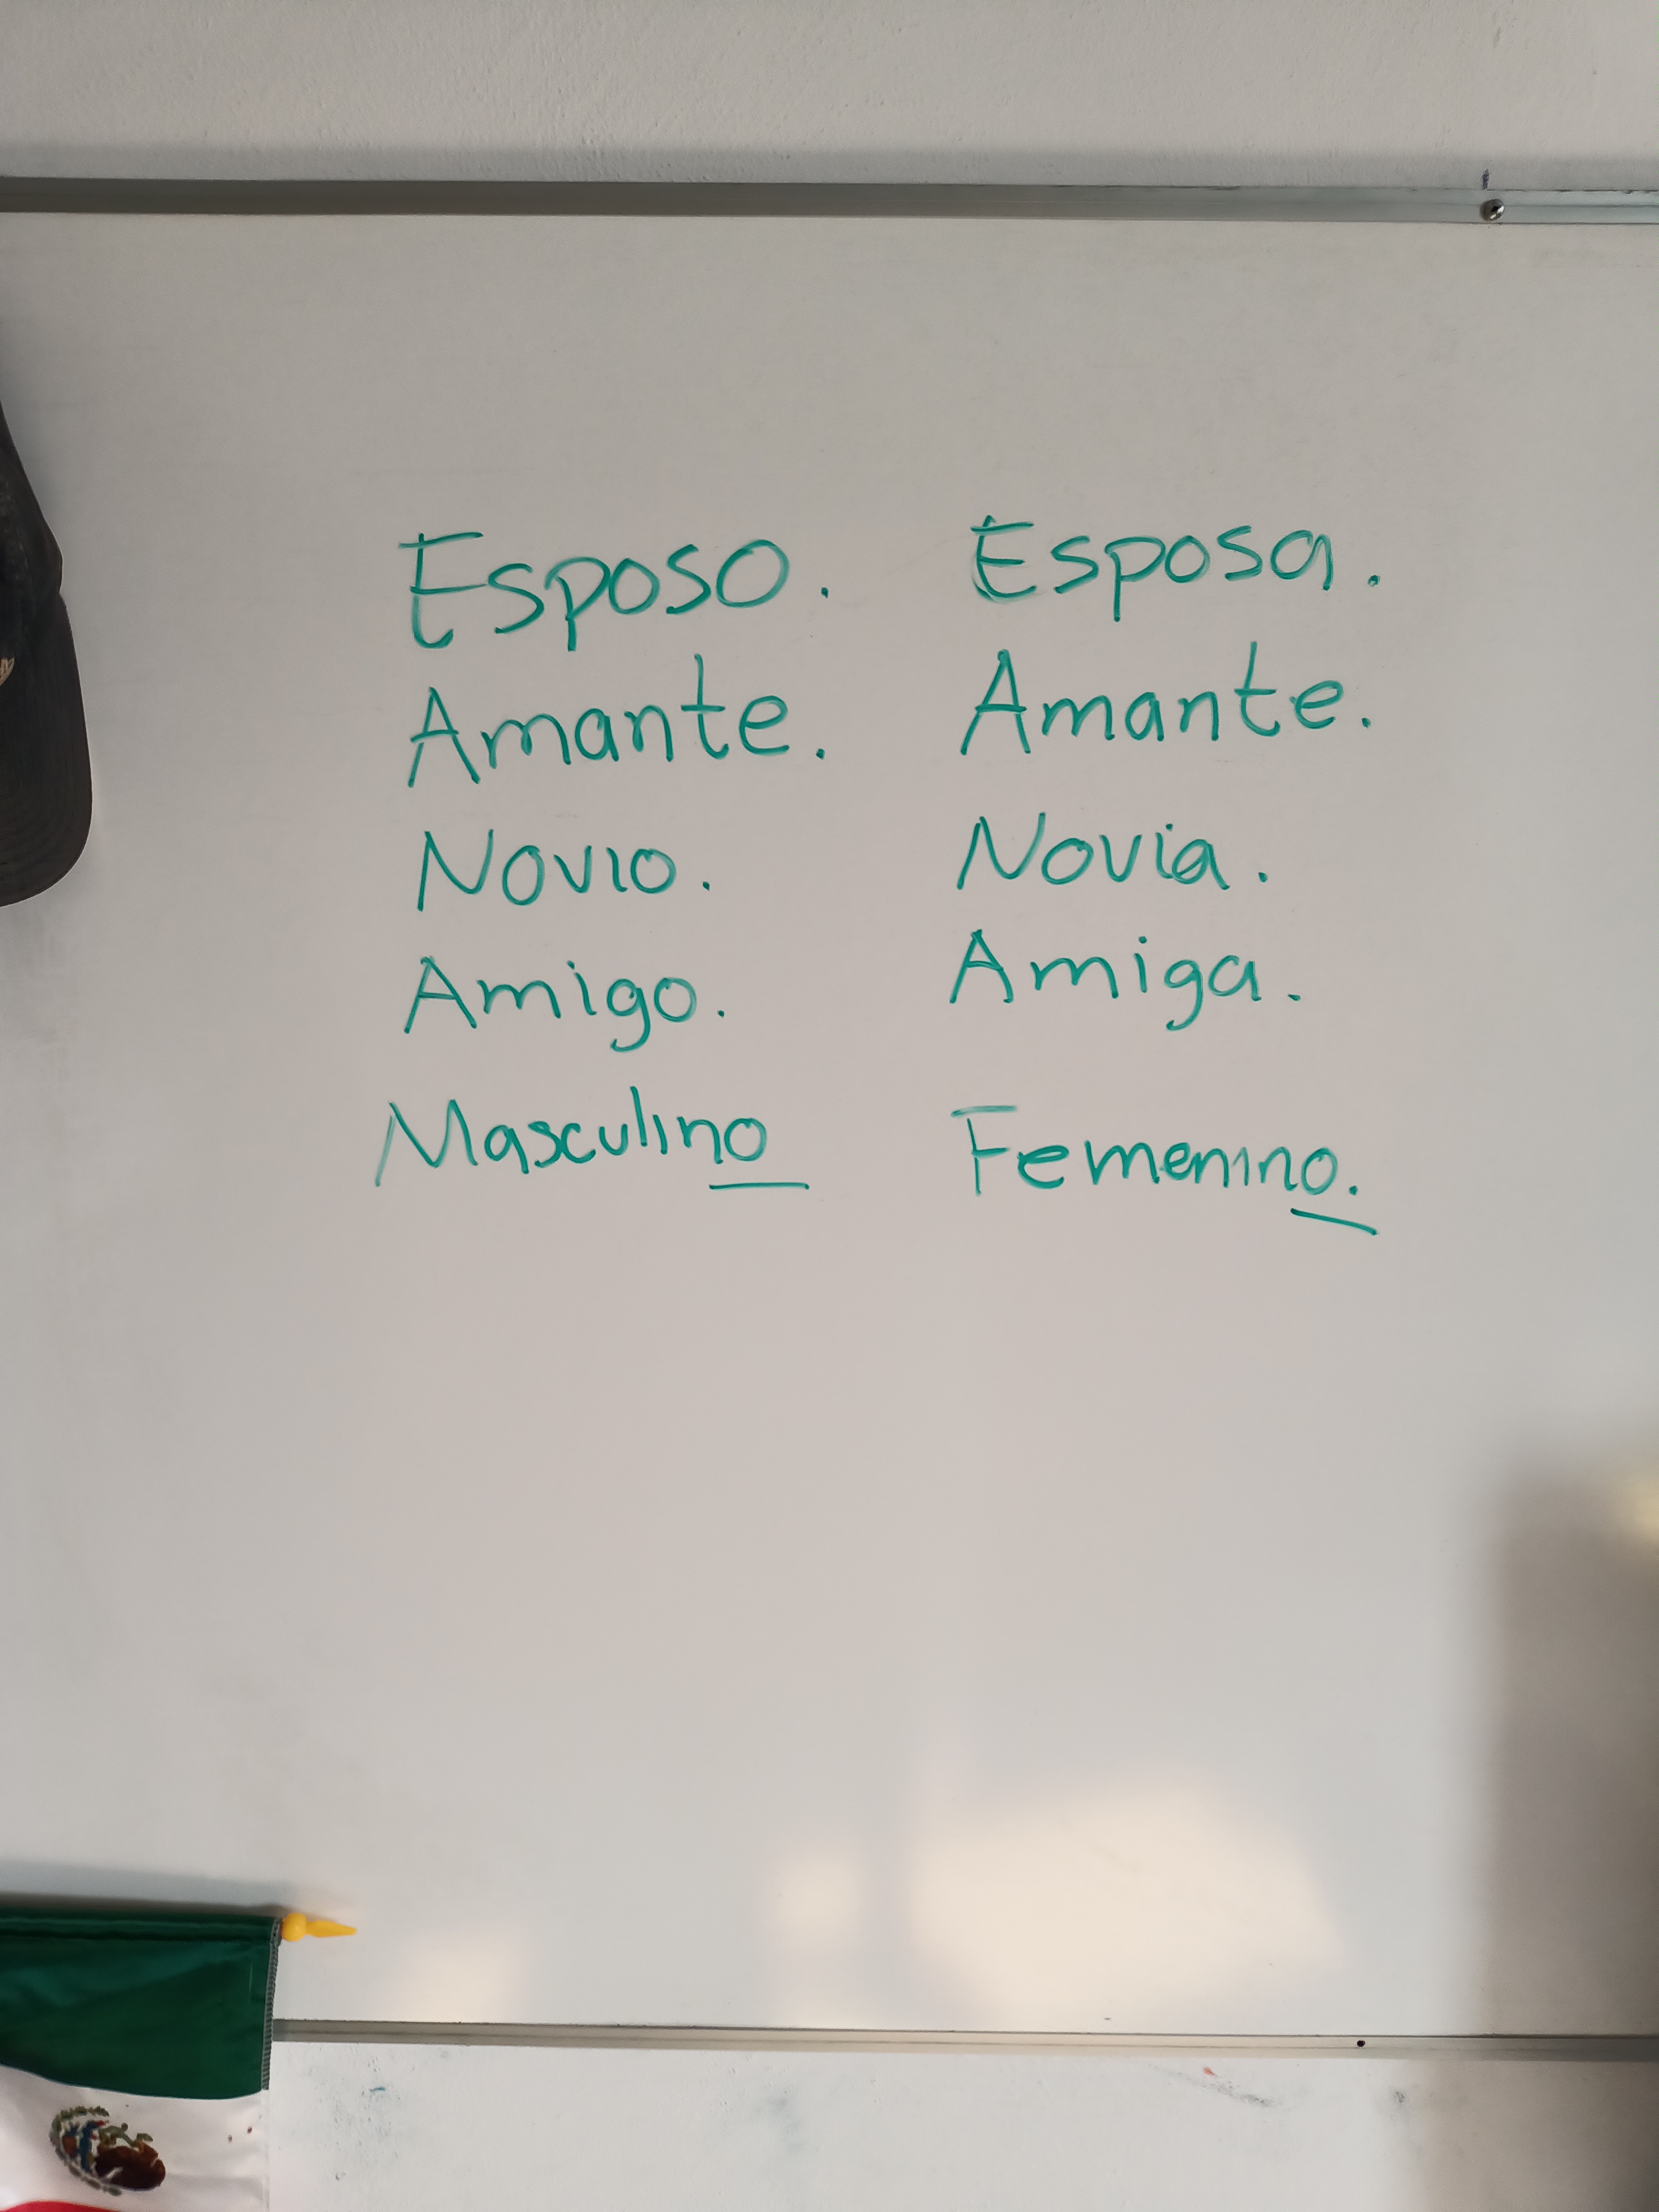 Esposo. Esposa.
Amante. Amante.
Novio. Novia.
Amigo. Amiga.
Masculino Femenino.